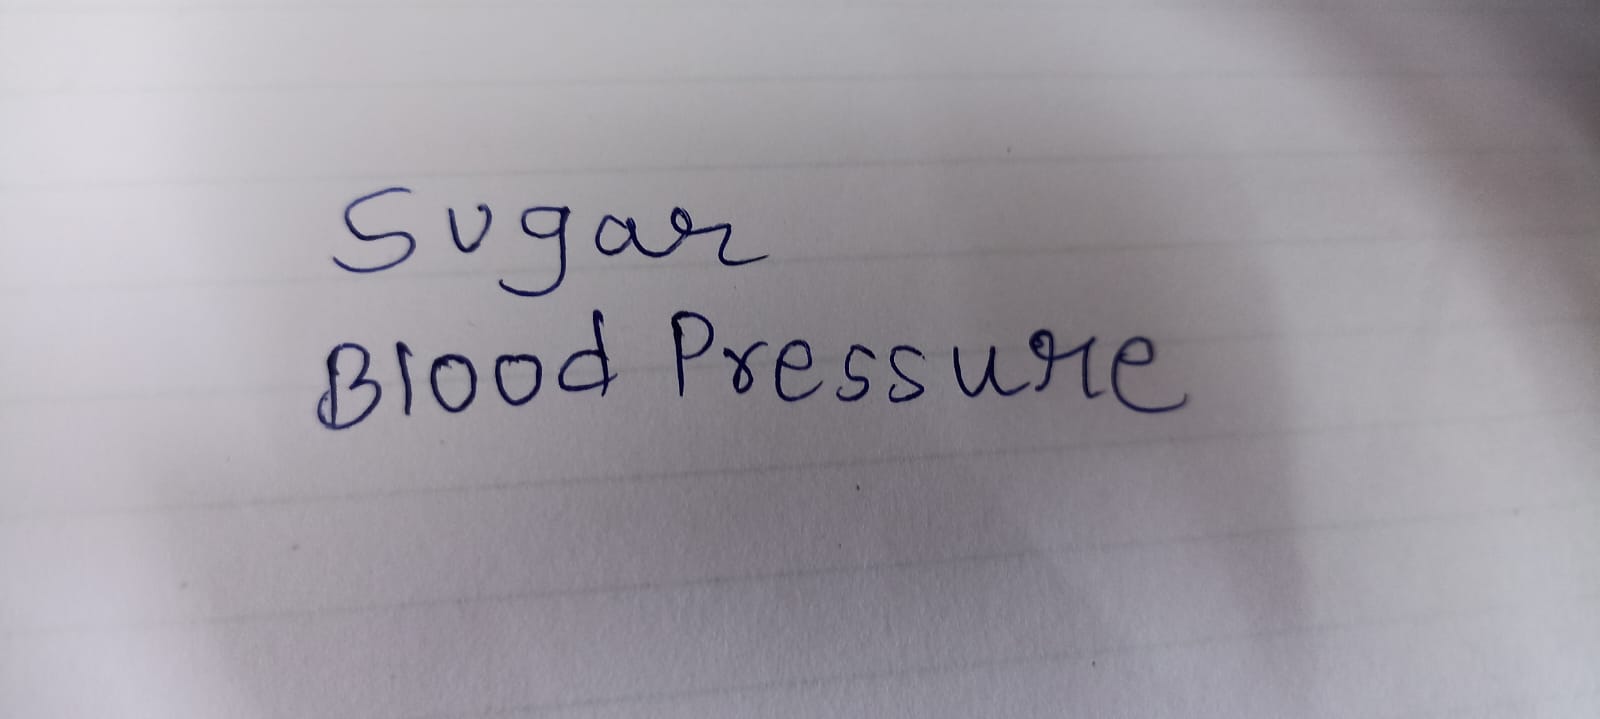 Sugar
Blood Pressure